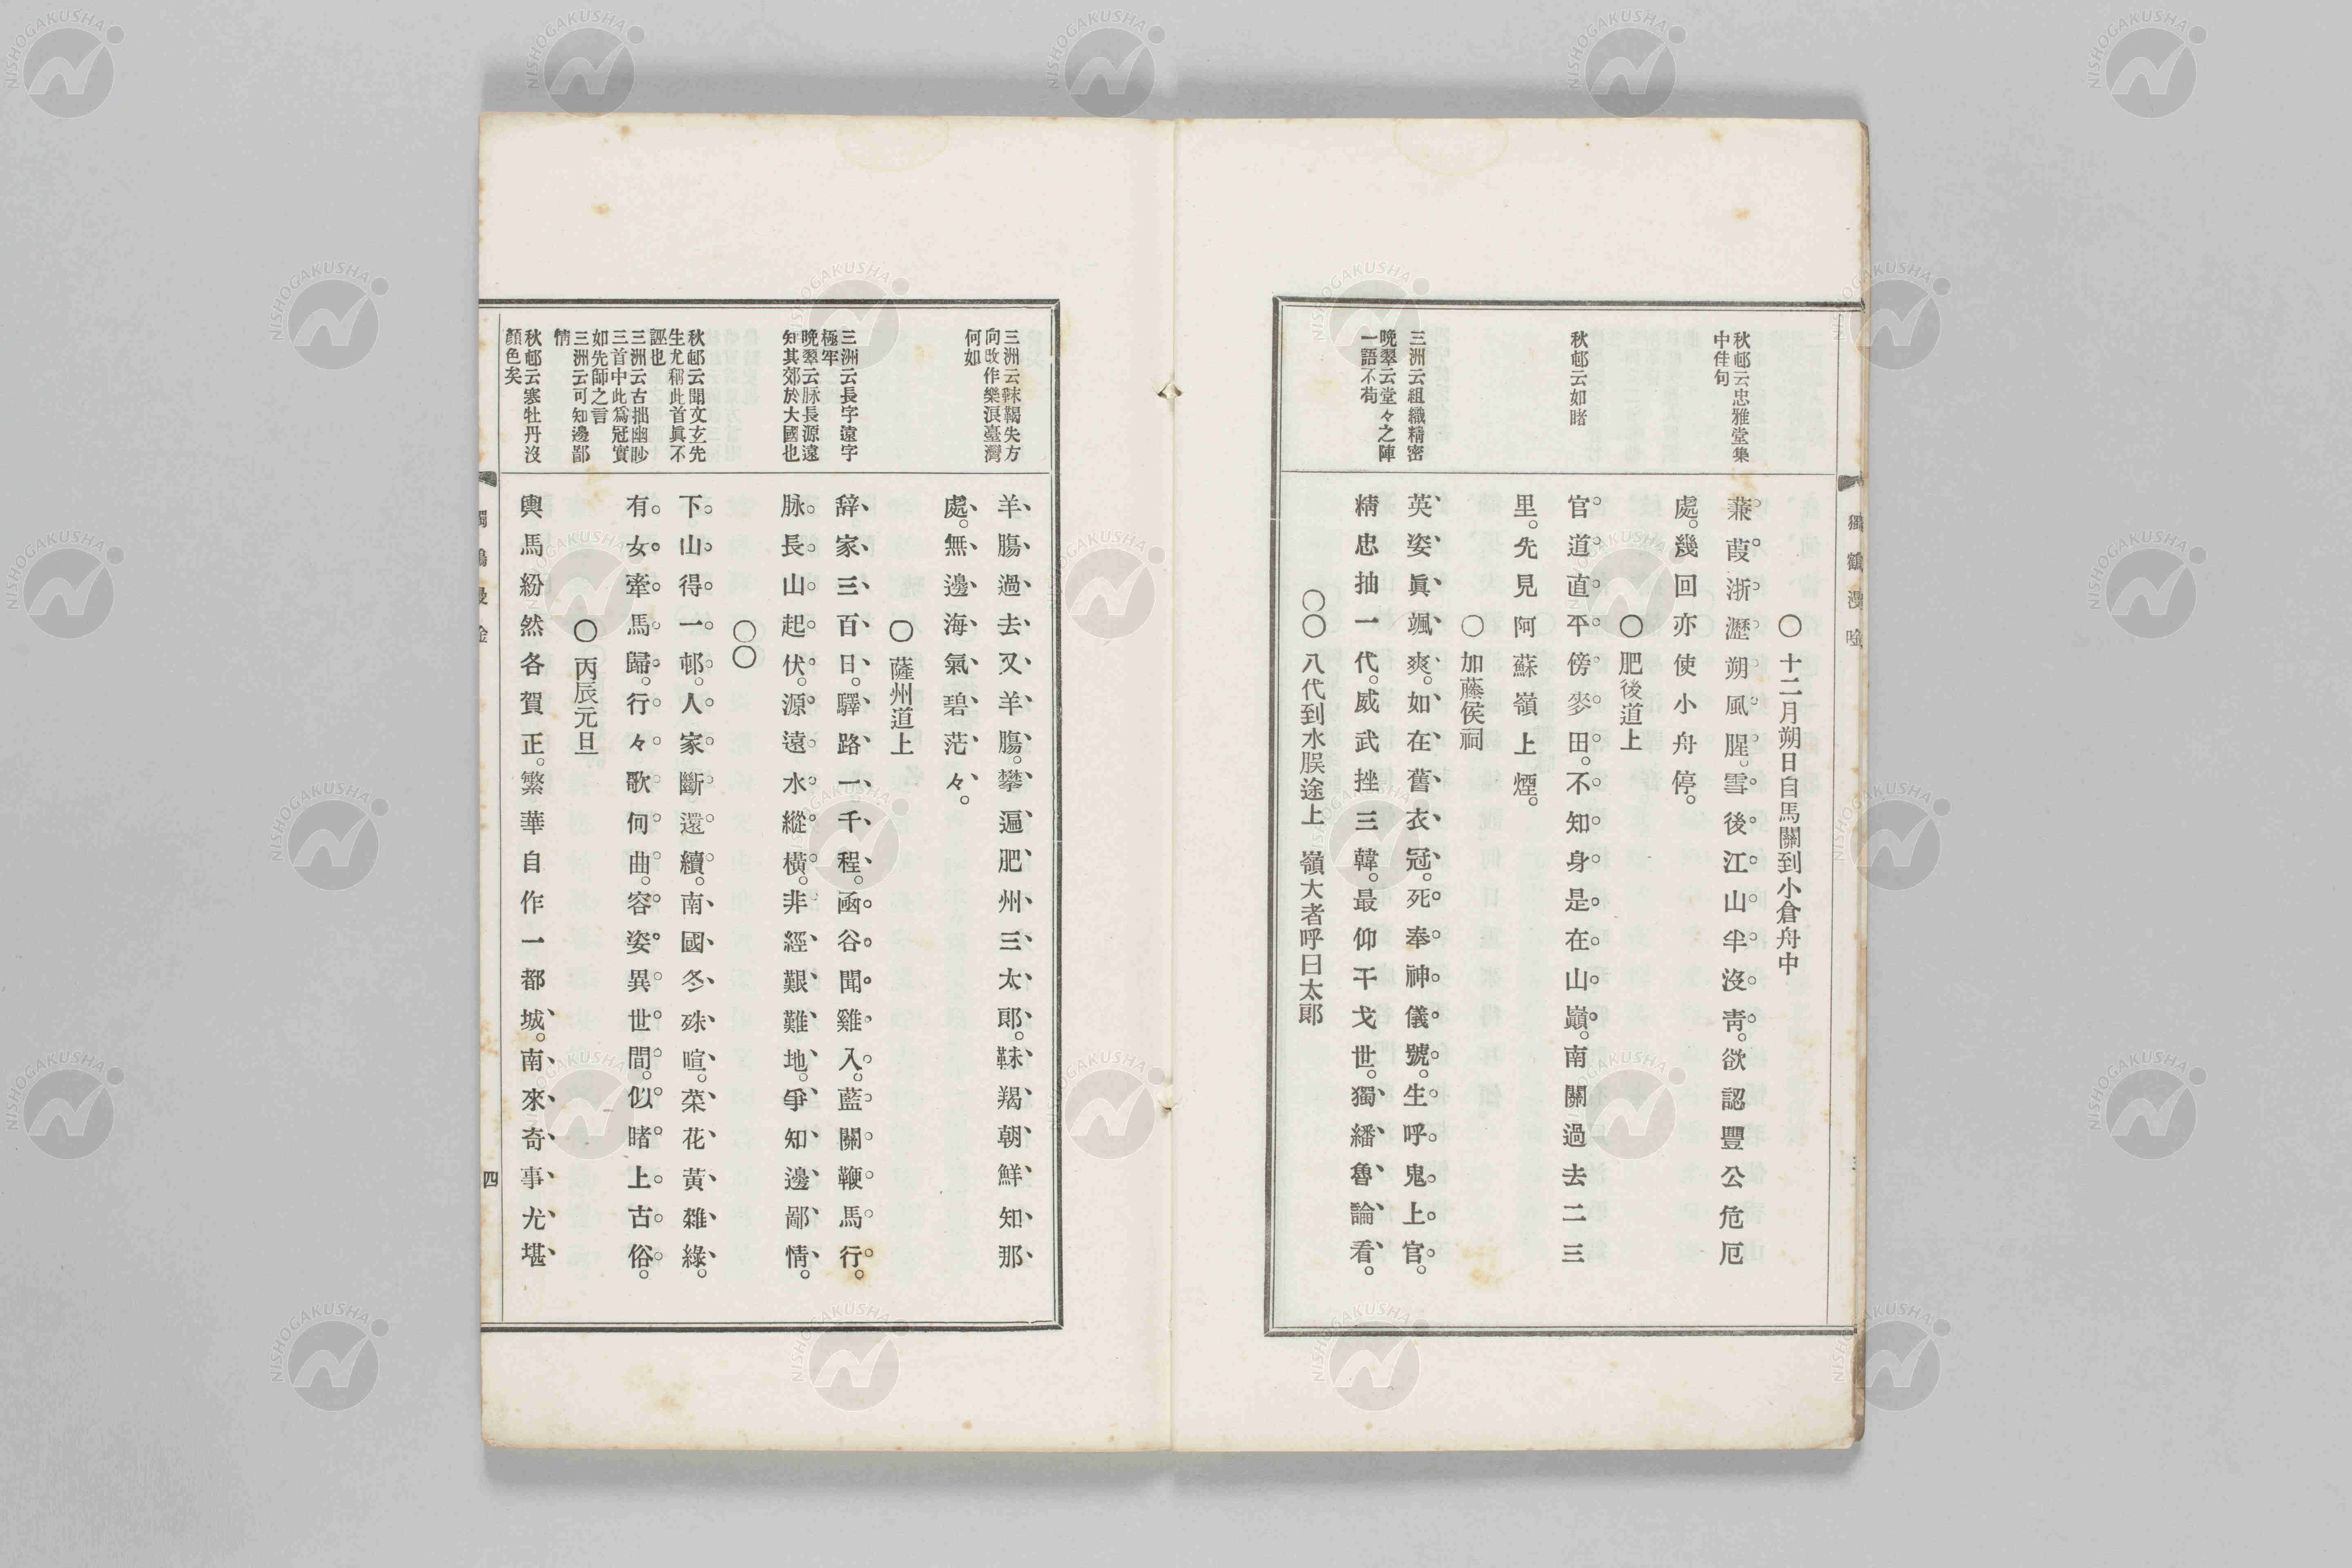 獨鶴漫唫
秋邨云忠雅堂集
中佳句
秋邨云如睹
三洲云組織精密
晩翠云堂々之陣
一語不苟
〇十二月朔日自馬關到小倉舟中
蒹葭浙瀝朔風腥。雪後江山半沒靑。欲認豐公危厄
處。幾回亦使小舟停。
〇肥後道上
官道直平傍麥田。不知身是在山巓。南關過去二三
里。先見阿蘇嶺上煙。
〇加藤侯祠
英姿眞颯爽。如在舊衣冠。死奉神儀號。生呼鬼上官。
精忠抽一代。威武挫三韓。最仰干戈世。獨繙魯論看。
〇〇八代到水脵途上 嶺大者呼曰太郎
三洲云靺鞨失方
向改作樂浪臺灣
何如
三洲云長字遠字
極牢
晩翠云脉長源遠
知其郊於大國也
秋邨云聞文玄先
生尤稱此首眞不
誣也
三洲云古拙幽眇
三首中此爲冠實
如先師之言
三洲云可知邊鄙
情
秋邨云寒牡丹沒
顏色矣
羊膓過去又羊膓。攀遍肥州三太郎。靺羯朝鮮知那
處。無邊海氣碧茫々。
〇薩州道上
辞家三百日。驛路一千程。凾谷聞雞入。藍關鞭馬行。
脉長山起伏。源遠水縱橫。非經艱難地。爭知邊鄙情。
〇〇
下山得一邨。人家斷還續。南國冬殊暄。菜花黃雜綠。
有女牽馬歸。行々歌何曲。容姿異世間。似睹上古俗。
〇丙辰元旦
輿馬紛然各賀正。繁華自作一都城。南來奇事尤堪
四